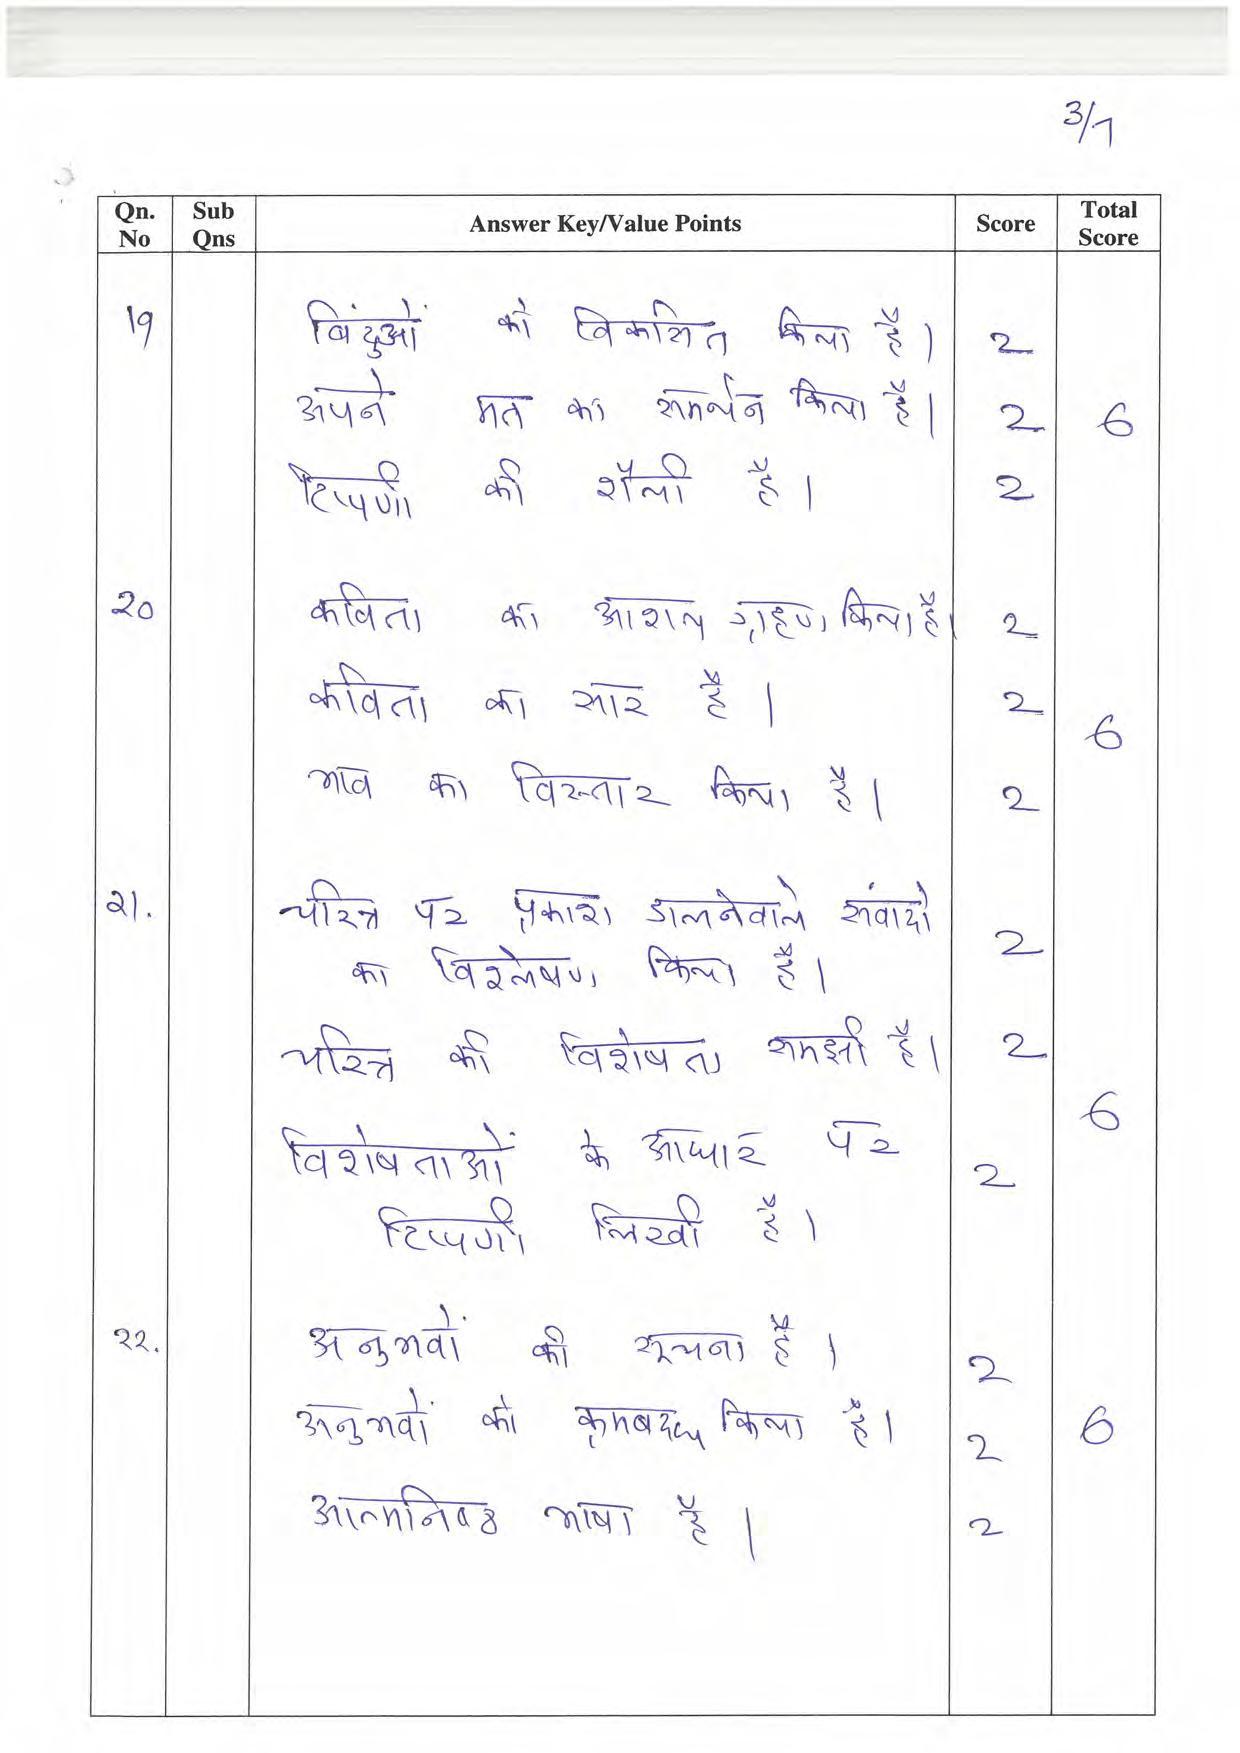 3/1
Qn. No Sub Qns Answer Key/Value Points Score Total Score
19 बिंदुओं को विकसित किया है। 2
अपने मत का समर्थन किया है। 2 6
टिप्पणी की शैली है। 2
20 कविता का आशय ग्रहण किया है। 2
कविता का सार है। 2 6
भाव का विस्तार किया है। 2
21. चरित्र पर प्रकाश डालनेवाले संवादों 2
का विश्लेषण किया है।
चरित्र की विशेषता समझी है। 2
6
विशेषताओं के आधार पर 2
टिप्पणी लिखी है।
22. अनुभवों की सूचना है। 2
अनुभवों को क्रमबद्ध किया है। 2 6
आत्मनिष्ठ भाषा है। 2